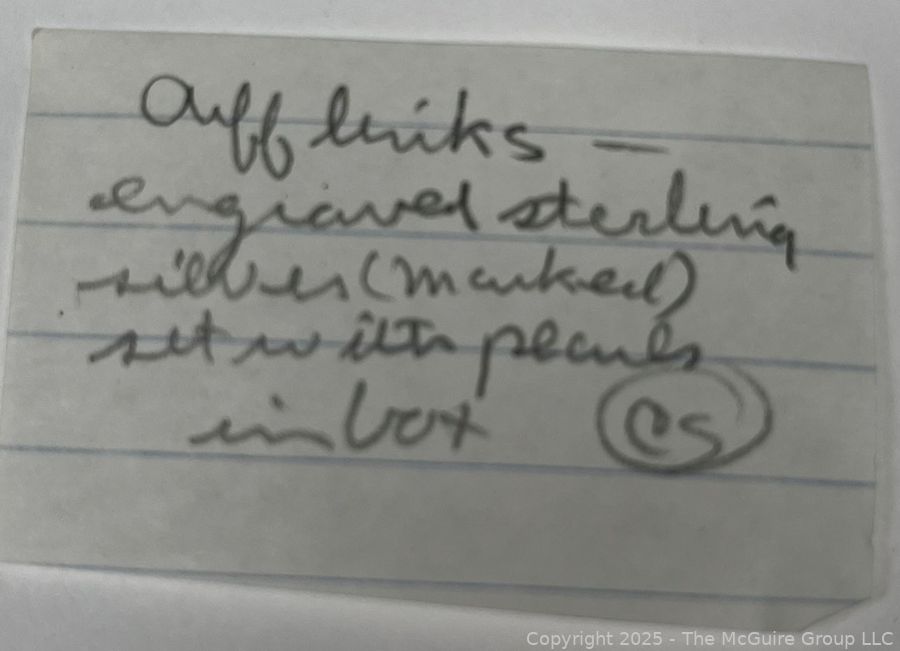 Cuff links —
engraved sterling
silver (marked)
set with pearls
in box CS
Copyright 2025 - The McGuire Group LLC